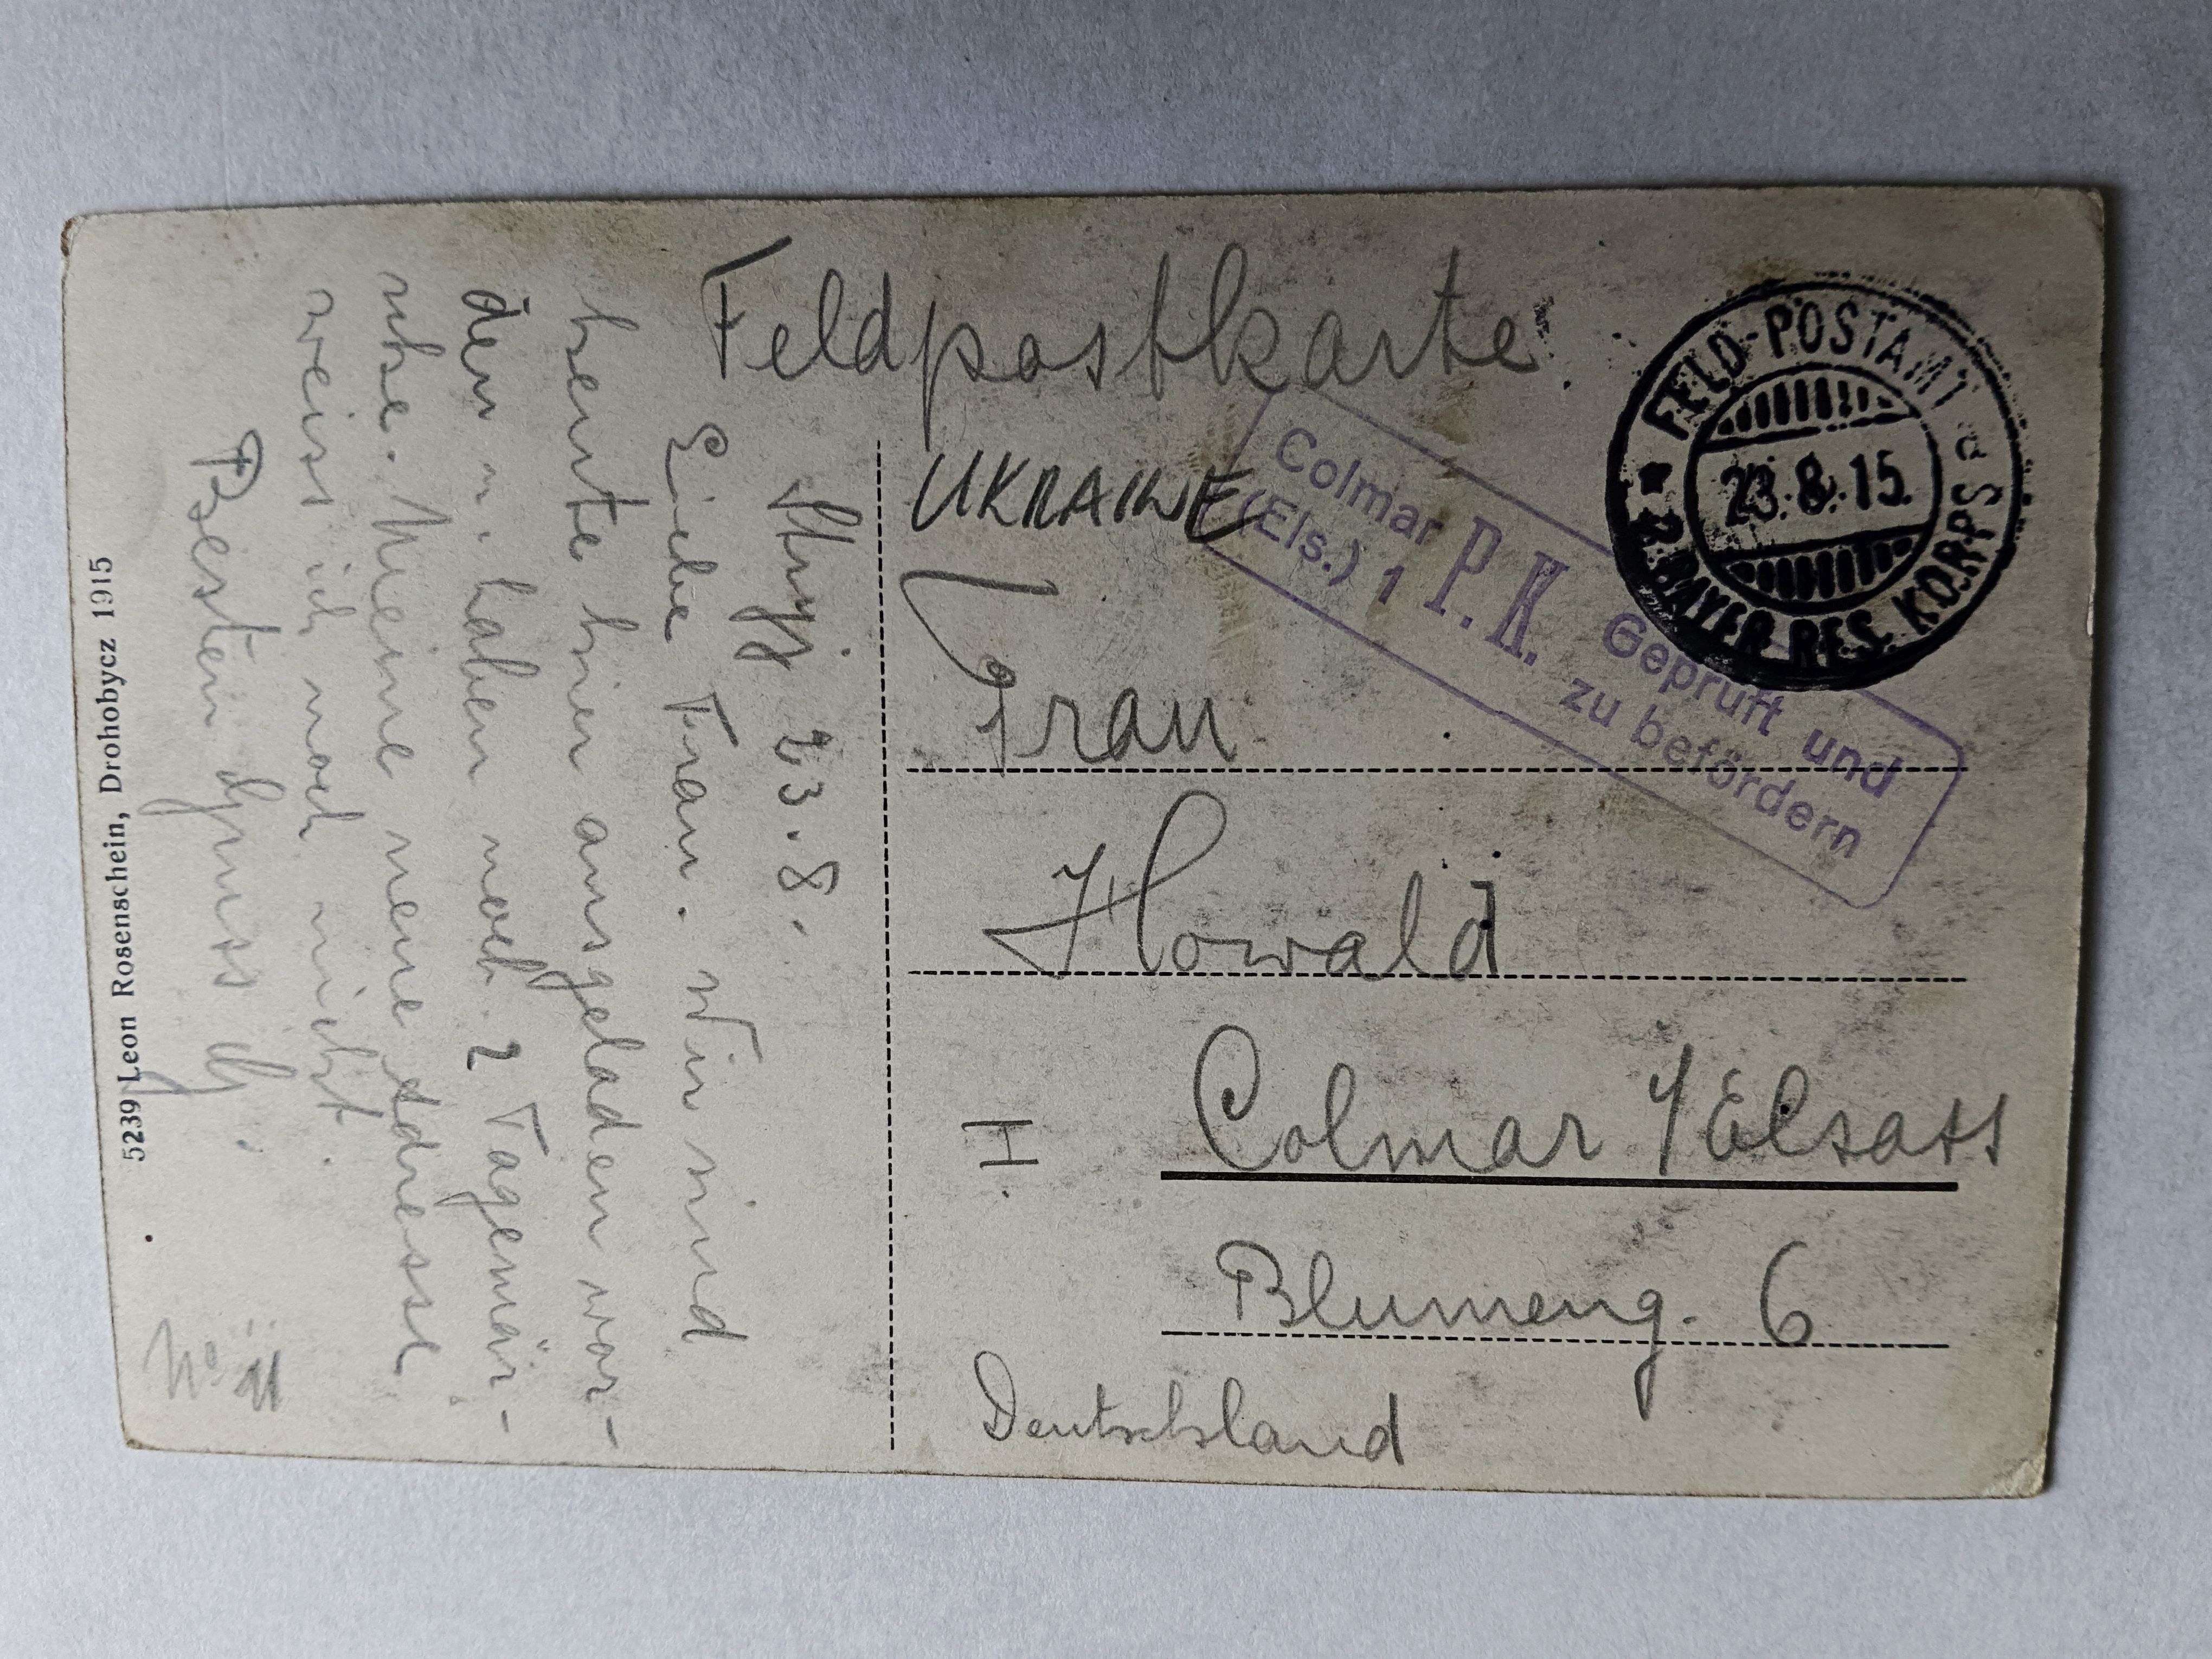 Feldpostkarte
FELD-POSTAMT
23.8.15.
K. BAYER. RES. KORPS
Colmar
(Els.) 1
P. K.
Geprüft und
zu befördern
UKRAINE
Frau
Howald
Colmar i/Elsass
Blumeng. 6
H
Deutschland
Stryj 23.8.
Liebe Frau. Wir sind
heute hier ausgeladen wor-
den u. haben noch 2 Tagemär-
sche. Meine neue Adresse
weiss ich noch nicht.
Besten Gruss
5239 Leon Rosenschein, Drohobycz 1915
No 11